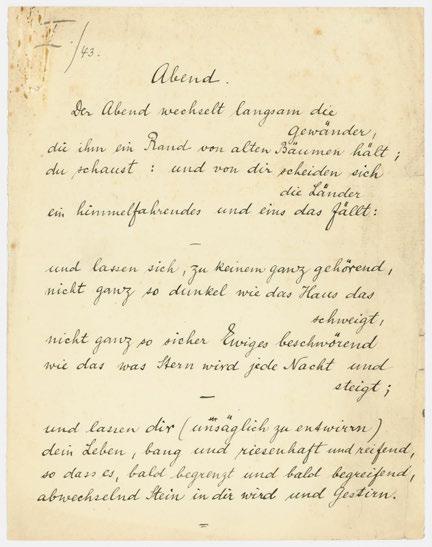 I./43.
Abend.
Der Abend wechselt langsam die
Gewänder,
die ihm ein Rand von alten Bäumen hält;
du schaust: und von dir scheiden sich
die Länder
ein himmelfahrendes und eins das fällt:
—
und lassen dich, zu keinem ganz gehörend,
nicht ganz so dunkel wie das Haus das
schweigt,
nicht ganz so sicher Ewiges beschwörend
wie das was Stern wird jede Nacht und
steigt;
—
und lassen dir (unsäglich zu entwirrn)
dein Leben, bang und riesenhaft und reifend,
so dass es, bald begrenzt und bald begreifend,
abwechselnd Stein in dir wird und Gestirn.
=